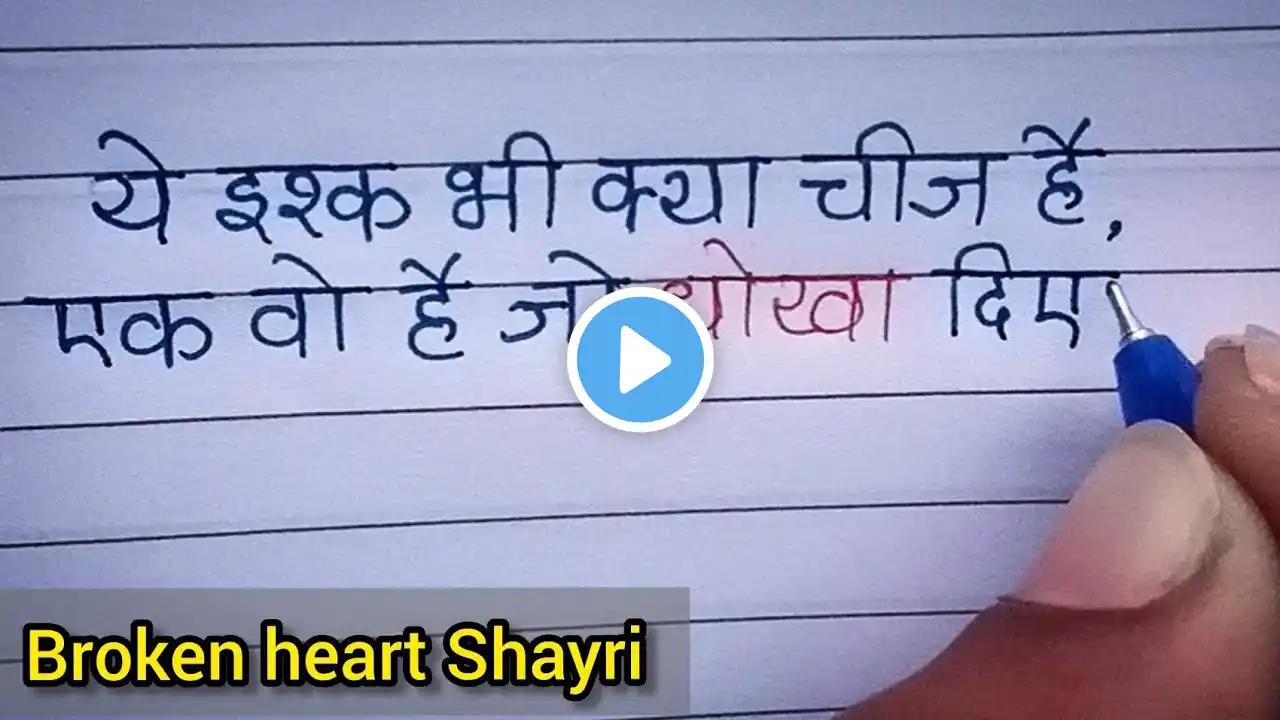 ये इश्क भी क्या चीज है,
एक वो है जो धोखा दिए
Broken heart Shayri